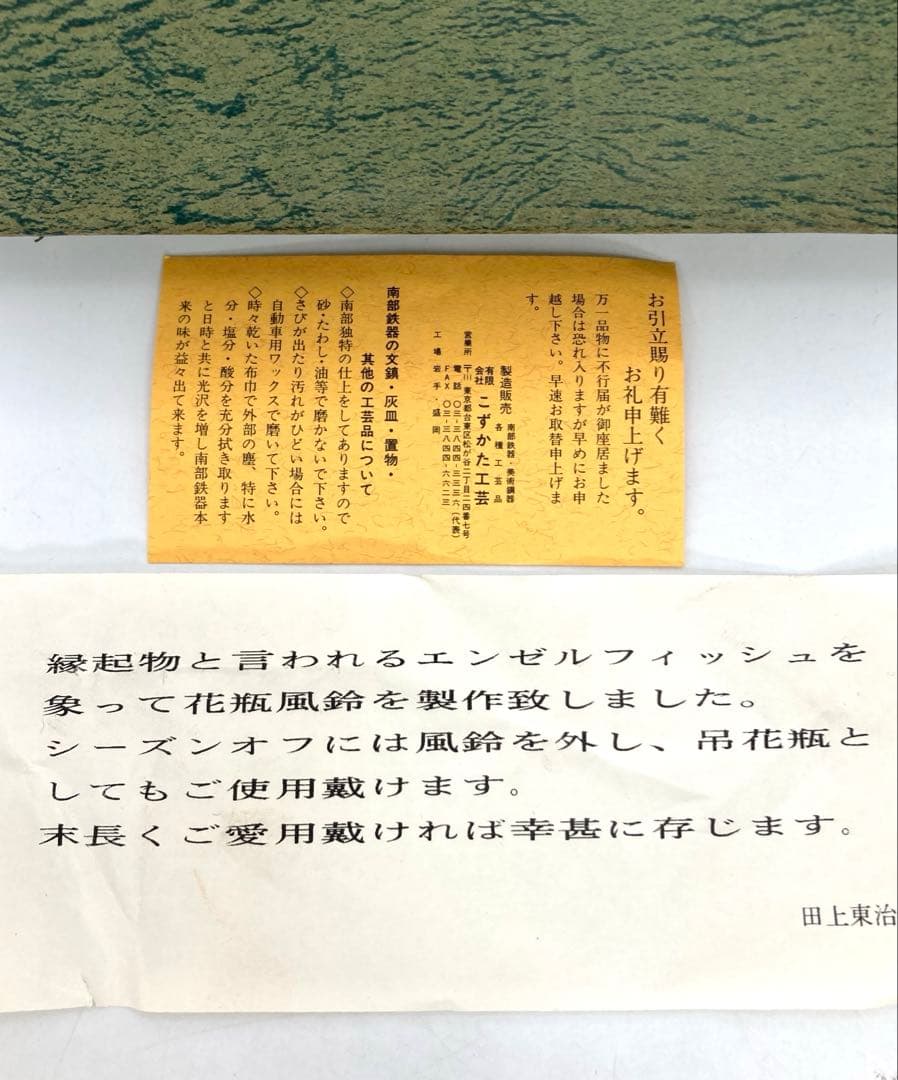 お引立賜り有難く
お礼申上げます。
万一品物に不行届が御座居ました
場合は恐れ入りますが早めにお申
越し下さい。早速お取替申上げま
す。
製造販売
南部鉄器・美術銅器
各種工芸品
有限会社 こずかた工芸
営業所 〒111 東京都台東区松が谷二丁目二四番七号
電話 〇三-三八四四-三三三六(代表)
FAX 〇三-三八四四-六六二三
工場 岩手・盛岡
南部鉄器の文鎮・灰皿・置物・
其他の工芸品について
◇南部独特の仕上をしてありますので
砂・たわし・油等で磨かないで下さい。
◇さびが出たり汚れがひどい場合には
自動車用ワックスで磨いて下さい。
◇時々乾いた布巾で外部の塵、特に水
分・塩分・酸分を充分拭き取ります
と日時と共に光沢を増し南部鉄器本
来の味が益々出て来ます。
縁起物と言われるエンゼルフィッシュを
象って花瓶風鈴を製作致しました。
シーズンオフには風鈴を外し、吊花瓶と
してもご使用戴けます。
末長くご愛用戴ければ幸甚に存じます。
田上東治